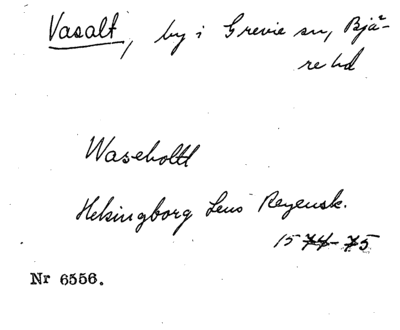 Vasalt, by i Grevie sn, Bjä-
re hd
Waseholtt
Helsingborg Lens Regensk.
1574-75
Nr 6556.